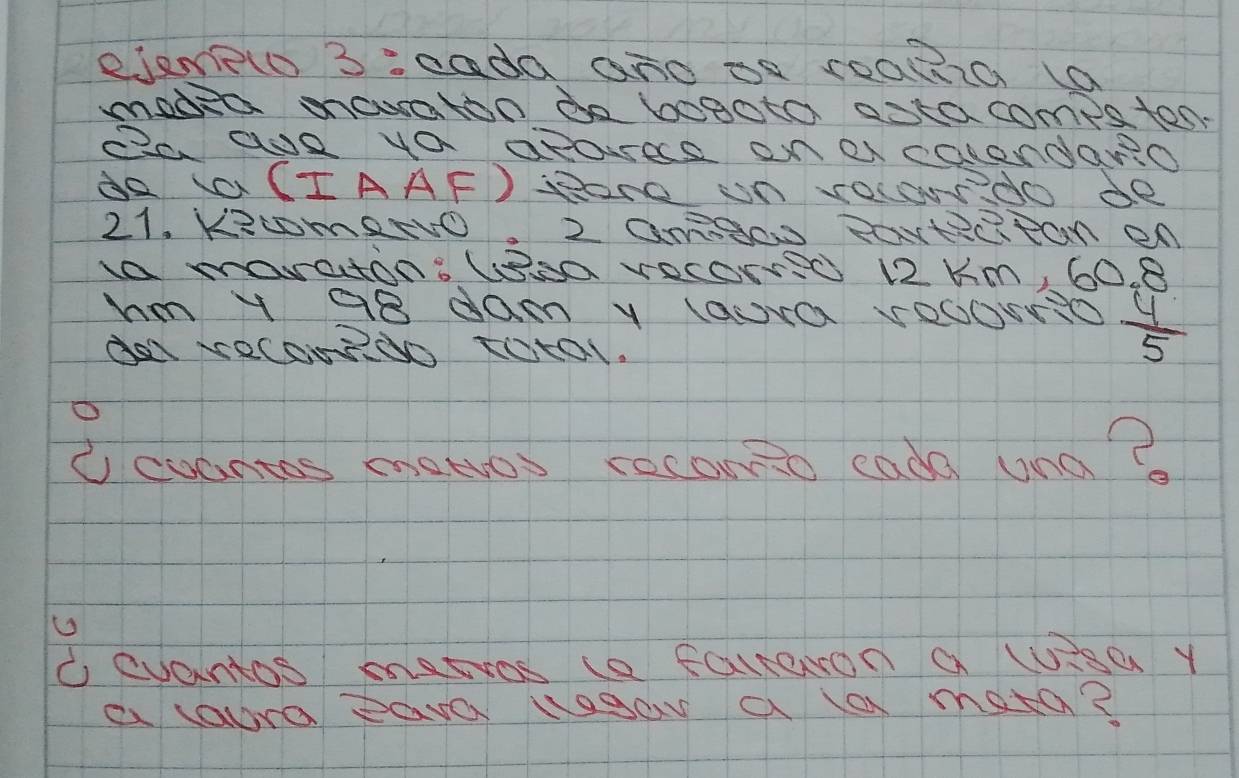 ejemplo 3: cada año se realiza la
media maraton de bogota esta competen-
cia que ya aparece en el calendario
de la (IAAF) tiene un recorrido de
21. Kilometro. 2 amigas participan en
la maratón: luisa recorrio 12 Km, 60,8
hm y 98 dam y laura recorrio 4/5
del recorrido total.
¿cuantos metros recorrio cada una?
¿cuantos metros le faltaron a luisa y
a laura para llegar a la meta?